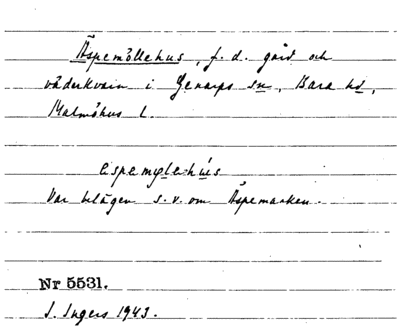 Äspemöllehus, f. d. gård och
väderkvarn i Genarps sn, Bara hd,
Malmöhus l.
espemølehús
Var belägen s.v. om Äspemarken.
Nr 5531.
I. Ingers 1943.